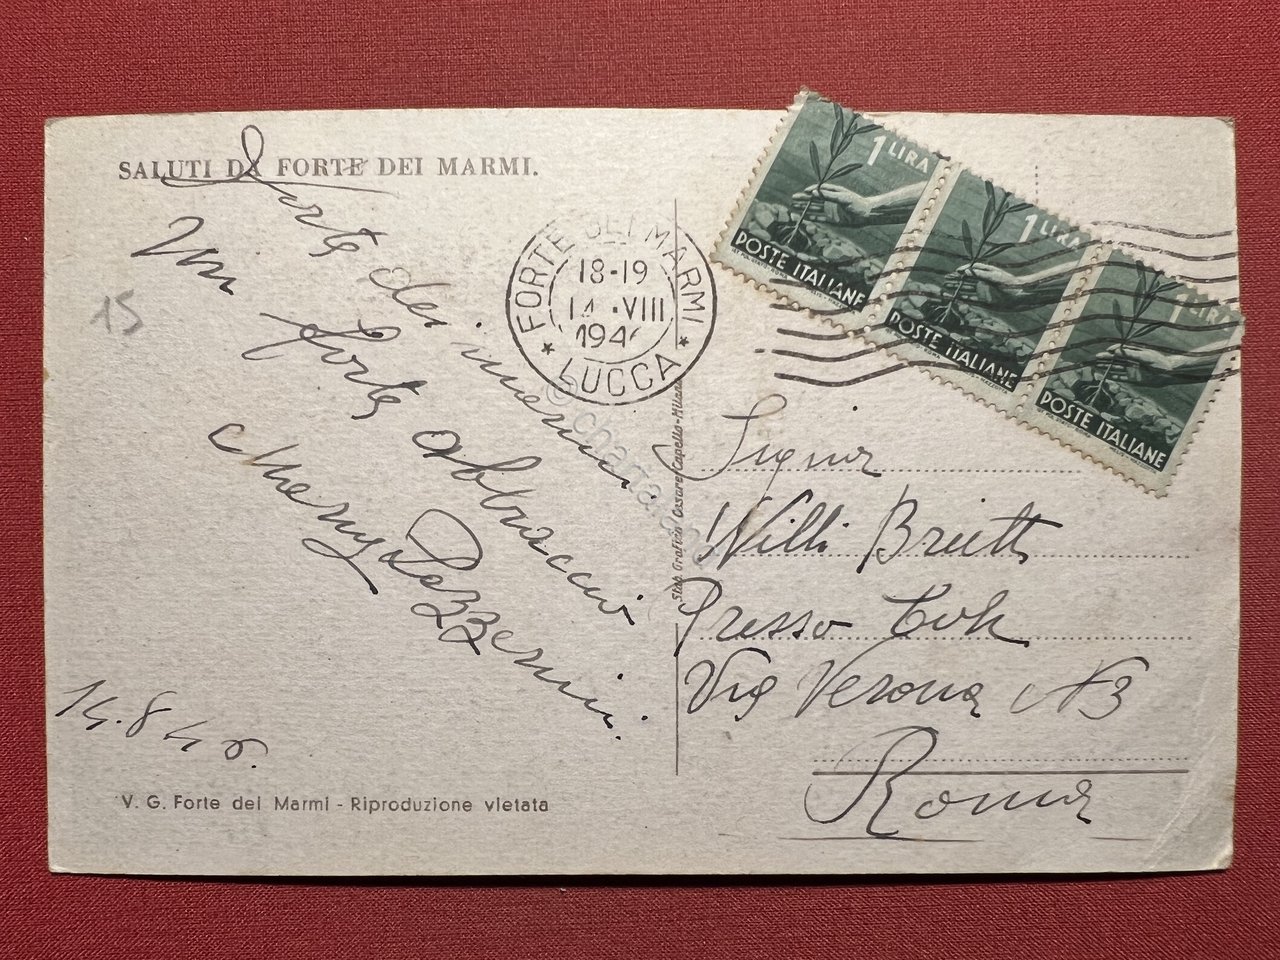 SALUTI DA FORTE DEI MARMI.
Forte dei marmi.
Un forte abbraccio
15
14.8.46.
V. G. Forte dei Marmi - Riproduzione vietata
FORTE DEI MARMI
18-19
14.VIII
1946
* LUCCA *
Stab. Grafico Cesare Capello-Milano
© chartaland
1 LIRA
POSTE ITALIANE
1 LIRA
POSTE ITALIANE
1 LIRA
POSTE ITALIANE
Signor
Willi
Presso
Via Verona N 3
Roma